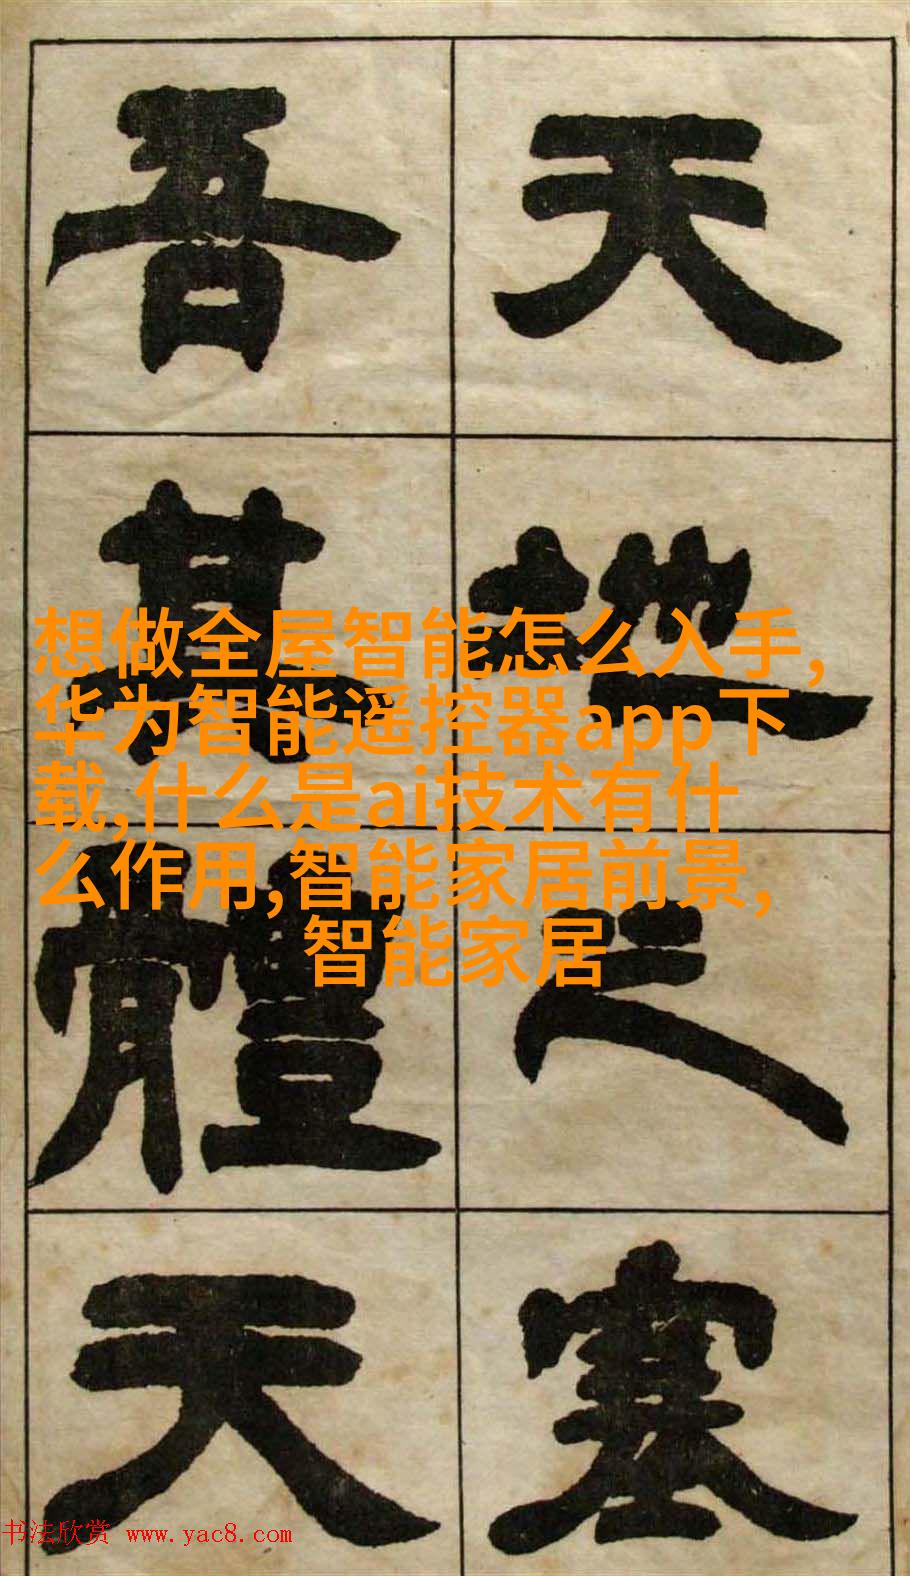 天地之塞
吾其體天
想做全屋智能怎么入手,
华为智能遥控器app下
载,什么是ai技术有什
么作用,智能家居前景,
智能家居
书法欣赏 www.yac8.com